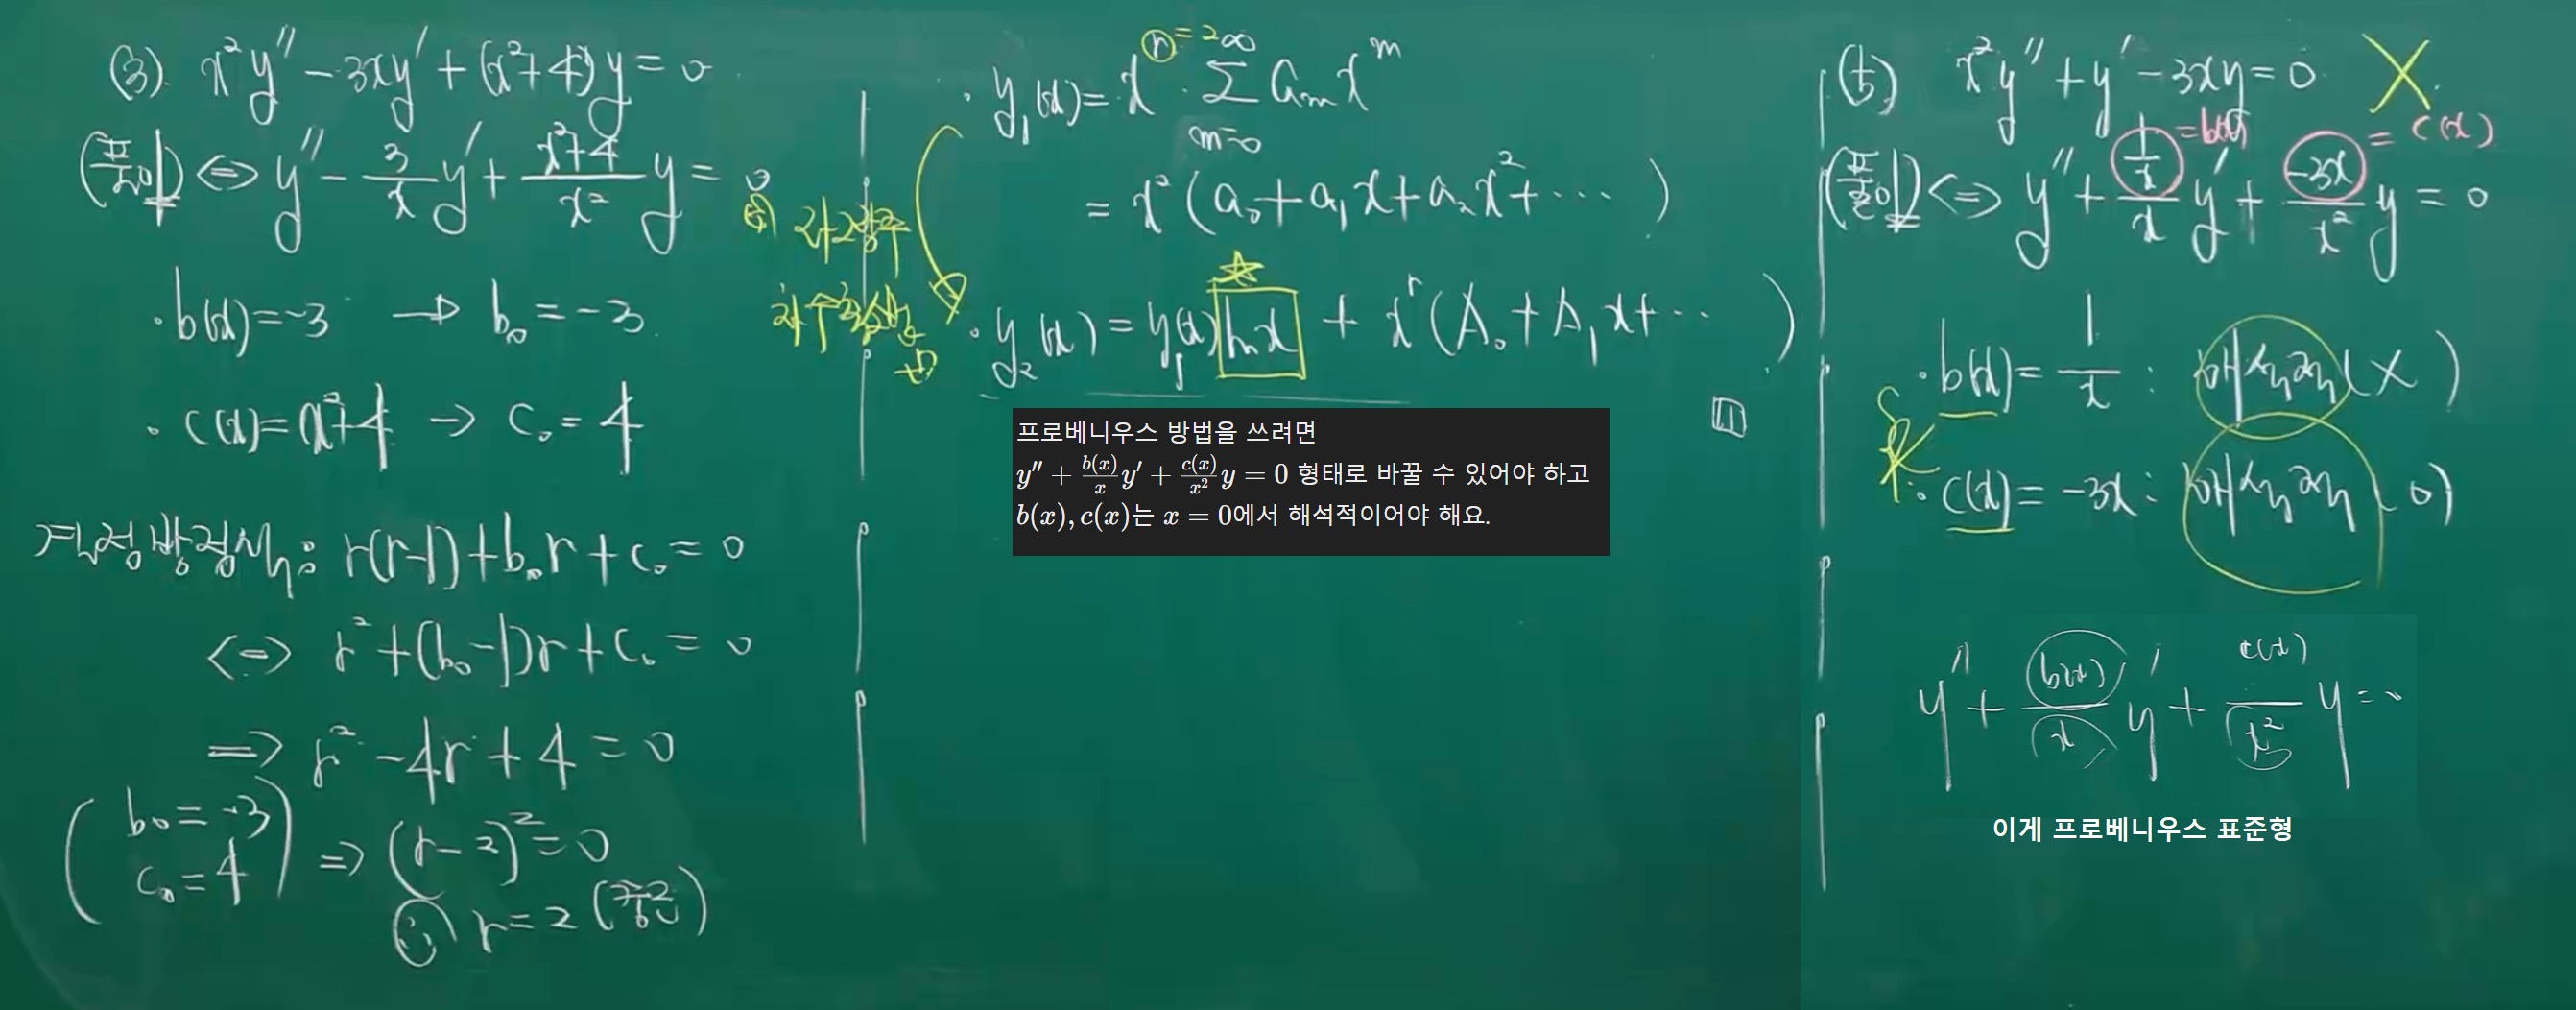 (3). x²y″ - 3xy′ + (x²+4)y = 0
(표준형) ⇔ y″ - 3/x y′ + (x²+4)/x² y = 0
· b(x) = -3 → b₀ = -3.
· c(x) = x²+4 → c₀ = 4
결정방정식: r(r-1)+b₀r+c₀ = 0
⇔ r²+(b₀-1)r+c₀ = 0
⇒ r²-4r+4 = 0
(b₀ = -3
c₀ = 4) ⇒ (r-2)² = 0
r = 2 (중근)
· y₁(x) = x^r · Σ_{m=0}^{∞} aₘx^m
r = 2
= x²(a₀+a₁x+a₂x²+⋯ )
☆
· y₂(x) = y₁(x) ln x + x^r(A₀+A₁x+⋯ )
프로베니우스 방법을 쓰려면
y″ + b(x)/x y′ + c(x)/x² y = 0 형태로 바꿀 수 있어야 하고
b(x), c(x)는 x = 0에서 해석적이어야 해요.
(5) x²y″ + y′ - 3xy = 0 X
= b(x) = c(x)
(표준형) ⇔ y″ + (1/x)/x y′ + (-3x)/x² y = 0
· b(x) = 1/x : 해석적(X)
· c(x) = -3x : 해석적(O)
y″ + b(x)/x y′ + c(x)/x² y = 0
이게 프로베니우스 표준형